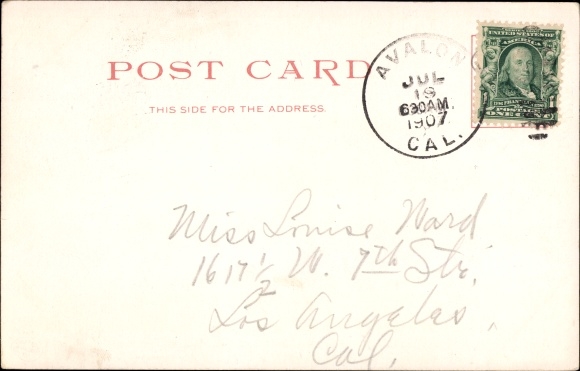 POST CARD
THIS SIDE FOR THE ADDRESS.
AVALON
JUL
19
630AM.
1907
CAL.
UNITED STATES OF
AMERICA
POSTAGE
ONE CENT
Miss Louise Ward
1617½ W. 7th Str.
Los Angeles,
Cal.